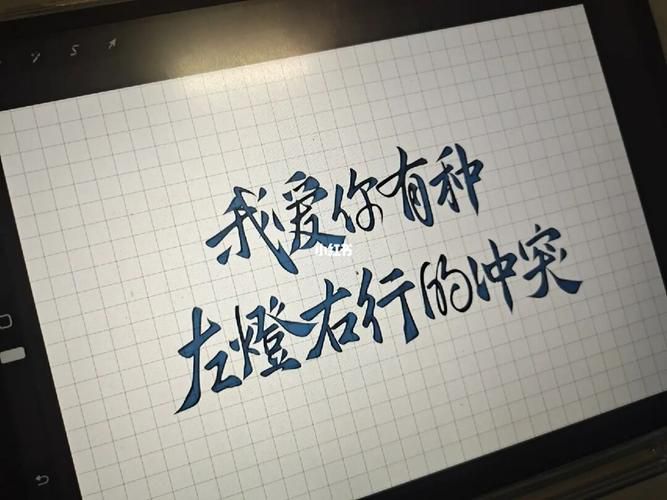 我爱你有种
小红书
左燈右行的冲突